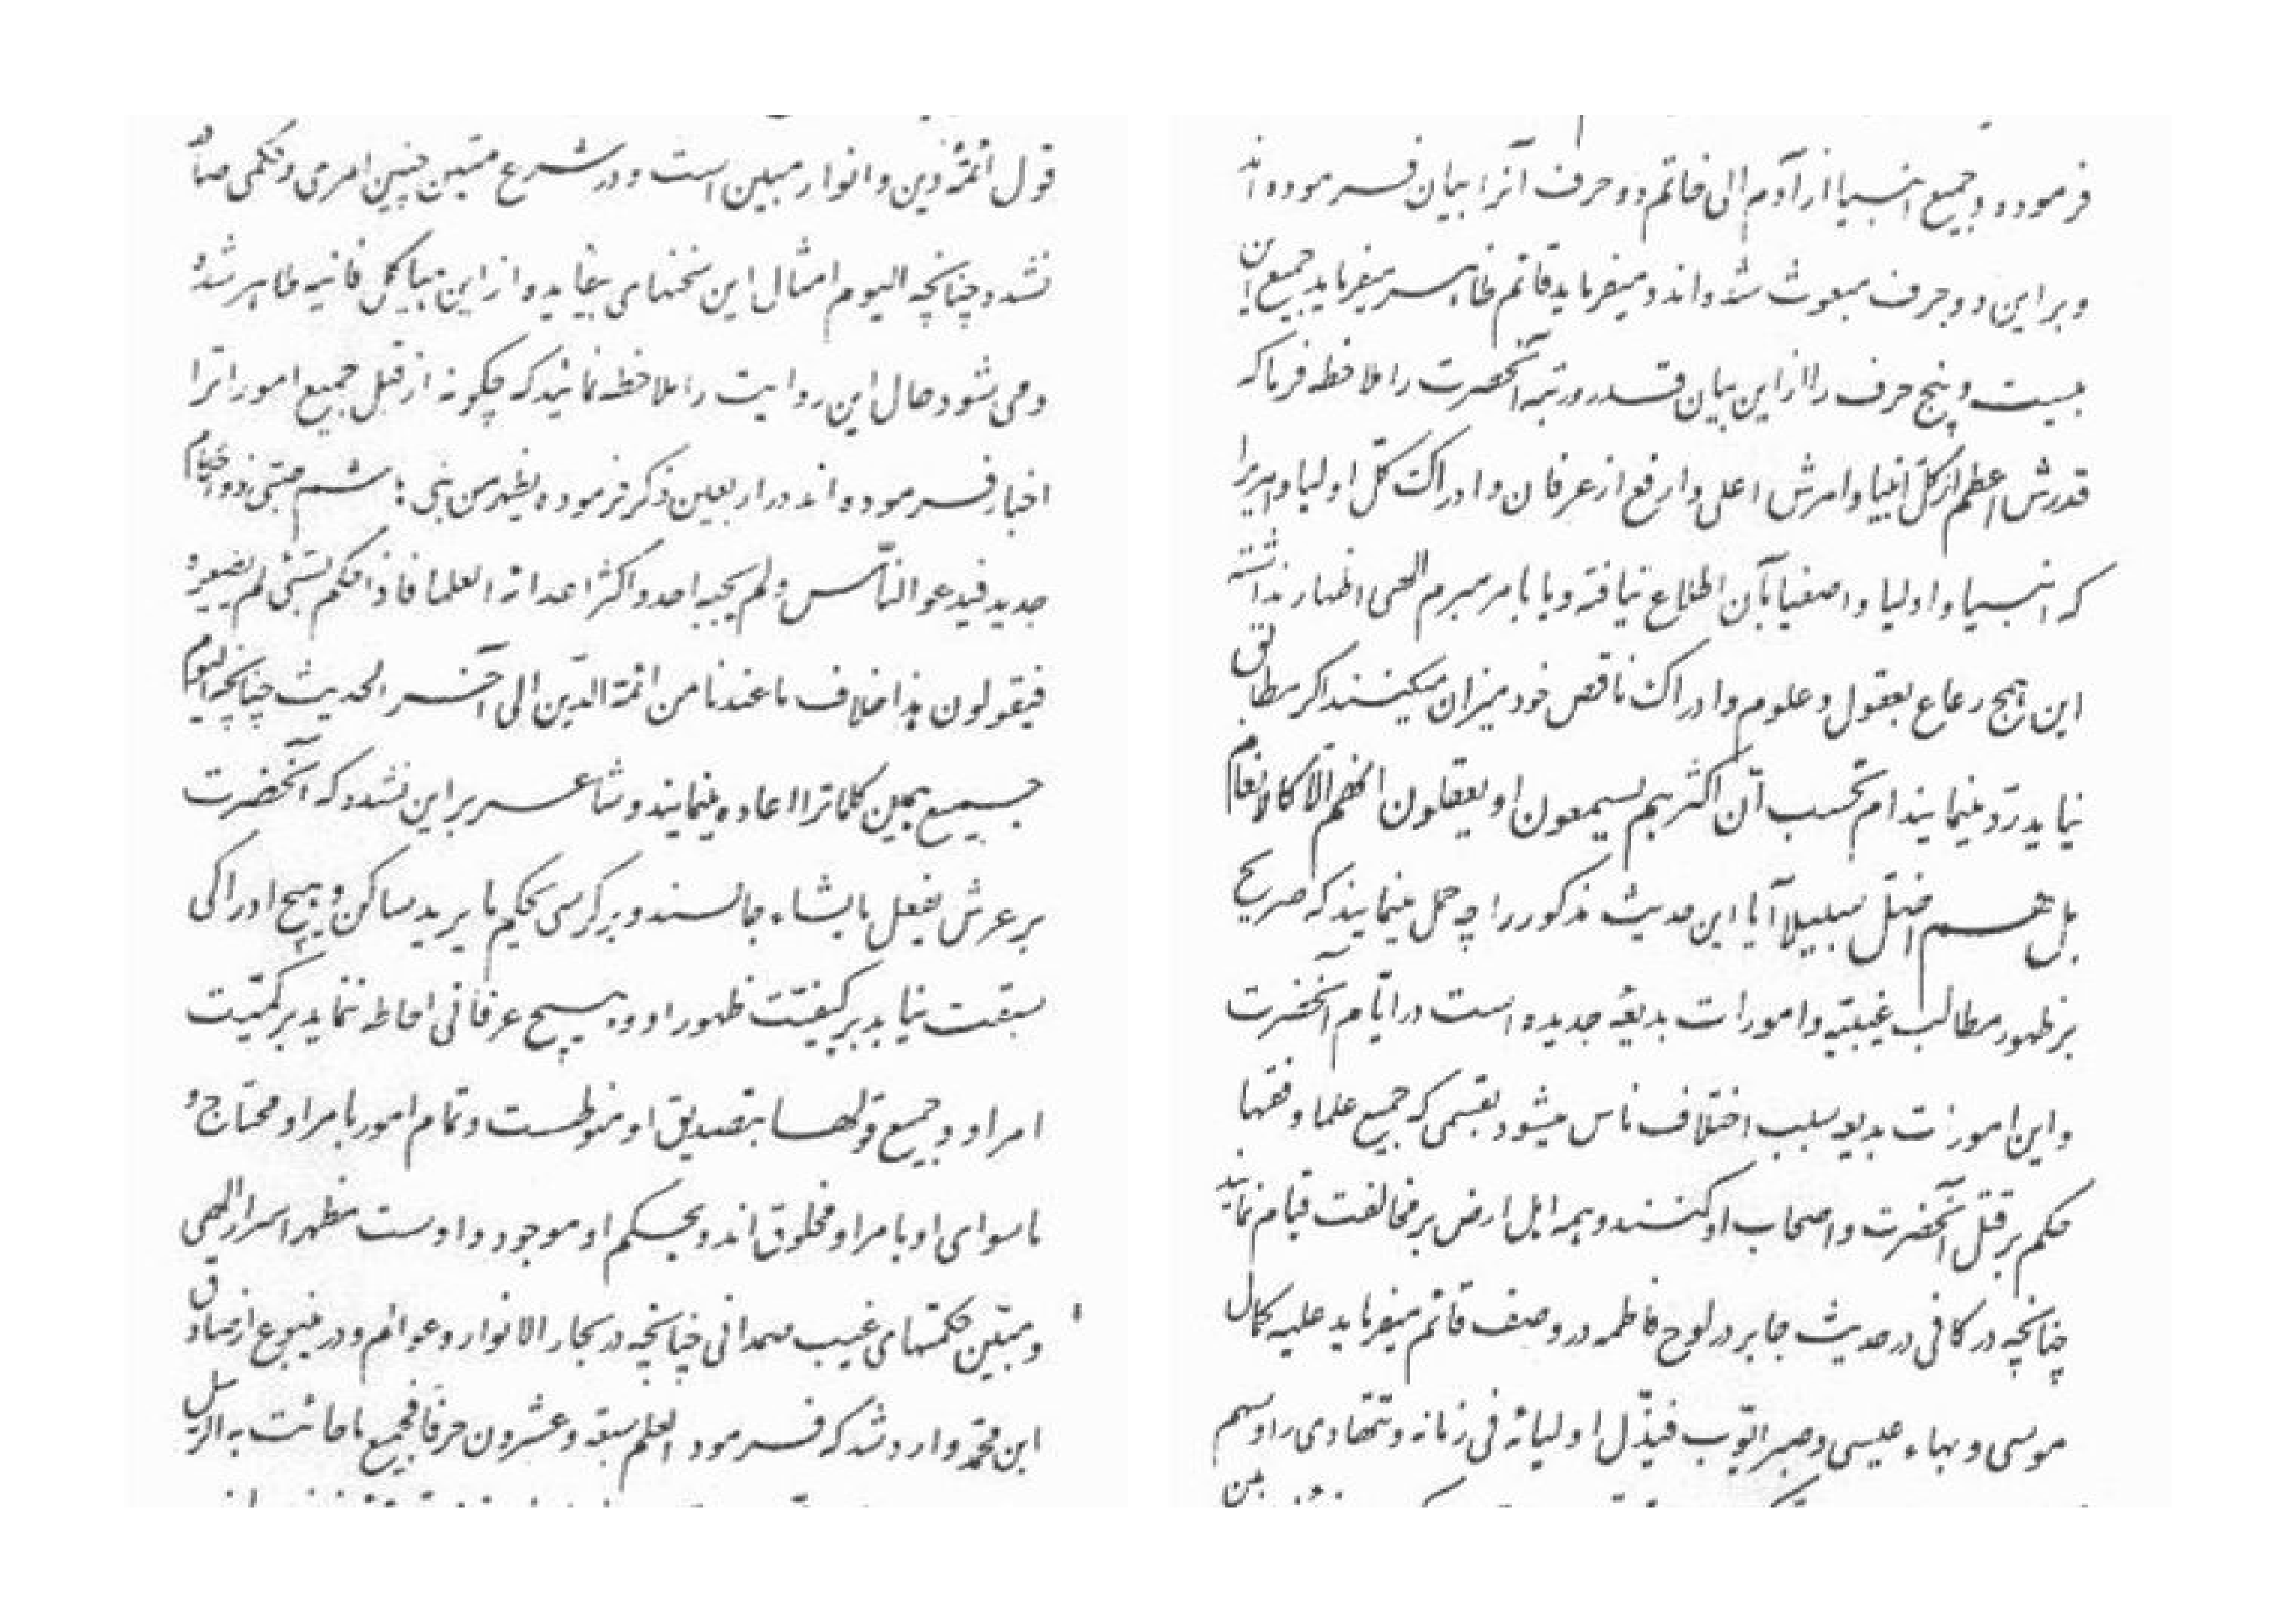 قول ائمّه دین و انوار مبین است و در شرع متین چنین امری و حکمی صادر
نشده چنانچه الیوم امثال این سخنهای بیفایده از این هیاکل فانیه ظاهر شده
و می شود حال این روایت را ملاحظه نمائید که چگونه از قبل جمیع امورات را
اخبار فرموده اند در اربعین ذکر فرموده یظهر من بنی هاشم صبیّ ذو احکام
جدید فیدعو النّاس و لم یجبه احد و اکثر اعدائه العلما فاذا حکم بشئ لم یطیعوه
فیقولون هذا خلاف ما عندنا من ائمّة الدّین الی آخر الحدیث چنانچه الیوم
جمیع همین کلمات را اعاده مینمایند و شاعر بر این نشده که آنحضرت
بر عرش یفعل ما یشاء جالسند و بر کرسی یحکم ما یرید ساکن و هیچ ادراکی
سبقت نیابد بر کیفیّت ظهور او و هیچ عرفانی احاطه ننماید بر کمّیّت
امر او و جمیع قولها بتصدیق او منوطست و تمام امور بامر او محتاج و
ماسوای او بامر او مخلوق اند و بحکم او موجود و اوست مظهر اسرار الهی
و مبیّن حکمتهای غیب صمدانی چنانچه در بحار الانوار و عوالم و در ینبوع از صادق
ابن محمّد وارد شد که فرمود العلم سبعة و عشرون حرفاً فجمیع ما جائت به الرّسل
فرموده و جمیع انبیا از آدم الی خاتم دو حرف آنرا بیان فرموده اند
و بر این دو حرف مبعوث شده اند و میفرماید قائم ظاهر میفرماید جمیع این
بیست و پنج حرف را از این بیان قدر و رتبه آنحضرت را ملاحظه فرما که
قدرش اعظم از کلّ انبیا و امرش اعلی و ارفع از عرفان و ادراک کلّ اولیا و امریرا
که انبیا و اولیا و اصفیا بآن اطّلاع نیافته و یا بامر مبرم الهی اظهار نداشته
این همج رعاع بعقول و علوم و ادراک ناقص خود میزان میکنند اگر مطابق
نیاید ردّ مینمایند ام تحسب انّ اکثرهم یسمعون او یعقلون ان هم الّا کالانعام
بل هم اضلّ سبیلاً آیا این حدیث مذکور را چه حمل مینمایند که صریح
بر ظهور مطالب غیبیّه و امورات بدیعهٔ جدیده است در ایّام آنحضرت
و این امورات بدیعه سبب اختلاف ناس میشود بقسمی که جمیع علما و فقها
حکم بر قتل آنحضرت و اصحاب او کنند و همه اهل ارض بر مخالفت قیام نمایند
چنانچه در کافی در حدیث جابر در لوح فاطمه در وصف قائم میفرماید علیه کمال
موسی و بهاء عیسی و صبر ایّوب فیذلّ اولیائه فی زمانه و تتهادی رؤسهم